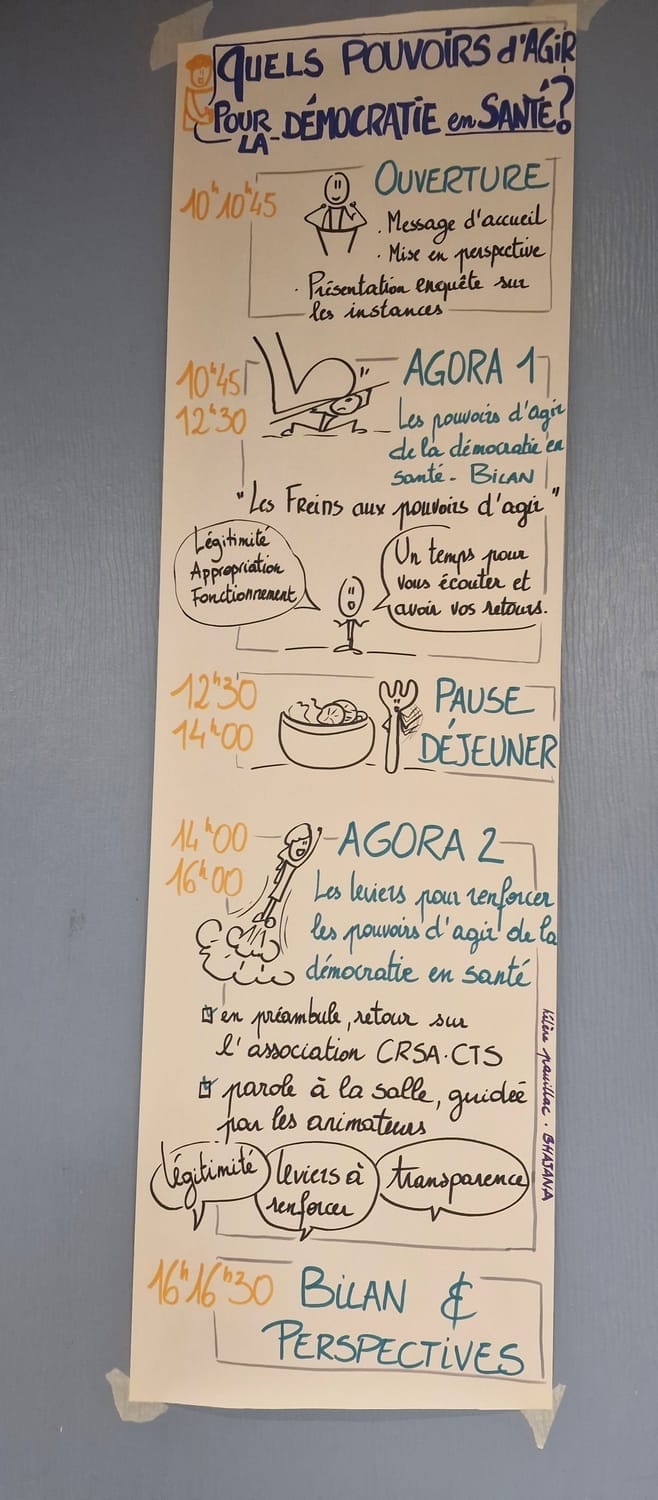 QUELS POUVOIRS d'AGIR
POUR LA DÉMOCRATIE en SANTÉ?
10h 10h45
OUVERTURE
. Message d'accueil
. Mise en perspective
. Présentation enquête sur
les instances
10h45
12h30
AGORA 1
Les pouvoirs d'agir
de la démocratie en
santé - BILAN
"Les Freins aux pouvoirs d'agir"
Légitimité
Appropriation
Fonctionnement
Un temps pour
vous écouter et
avoir vos retours.
12h30
14h00
PAUSE
DÉJEUNER
14h00
16h00
AGORA 2
Les leviers pour renforcer
les pouvoirs d'agir de la
démocratie en santé
en préambule, retour sur
l'association CRSA.CTS
parole à la salle, guidée
par les animateurs
légitimité
leviers à
renforcer
transparence
hélène pouillac . BHAJANA
16h 16h30
BILAN &
PERSPECTIVES